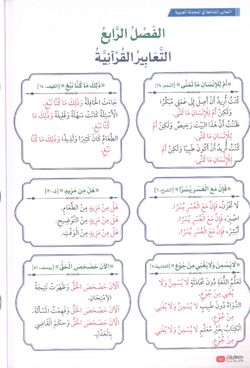 التعابير الشائعة في المحادثة العربية
الفَصْلُ الرَّابِعُ
التَّعَابِيرُ القُرْآنِيَّةُ
﴿أَمْ لِلْإِنسَانِ مَا تَمَنَّى﴾
كُنْتُ أُرِيدُ أَنْ أَصِلَ إِلَى عَمَلِي مُبَكِّرًا
وَلَكِنْ أَمْ لِلْإِنسَانِ مَا تَمَنَّى.
ظَنَنْتُ أَنَّ هَذَا البَيْتَ رَخِيصٌ وَلَكِنْ أَمْ
لِلْإِنسَانِ مَا تَمَنَّى.
كُنْتُ أُرِيدُ أَنْ أَكُونَ طَبِيبًا وَلَكِنْ أَمْ
لِلْإِنسَانِ مَا تَمَنَّى.
﴿ذَلِكَ مَا كُنَّا نَبْغِ﴾
جَاءَتِ الحَافِلَةُ وَذَلِكَ مَا كُنَّا نَبْغِ.
الأَسْئِلَةُ كَانَتْ سَهْلَةً وَقَلِيلَةً وَذَلِكَ مَا
كُنَّا نَبْغِ.
الطَّعَامُ كَانَ كَثِيرًا وَلَذِيذًا وَذَلِكَ مَا كُنَّا
نَبْغِ.
﴿فَإِنَّ مَعَ العُسْرِ يُسْرًا﴾
لَا تَحْزَنْ، فَإِنَّ مَعَ العُسْرِ يُسْرًا.
اصْبِرْ، فَإِنَّ مَعَ العُسْرِ يُسْرًا.
فَإِنَّ مَعَ العُسْرِ يُسْرًا.
﴿هَلْ مِنْ مَزِيدٍ﴾
هَلْ مِنْ مَزِيدٍ مِنَ الطَّعَامِ.
هَلْ مِنْ مَزِيدٍ مِنَ التَّوْضِيحِ.
هَلْ مِنْ مَزِيدٍ مِنَ الوَقْتِ.
﴿لَا يُسْمِنُ وَلَا يُغْنِي مِنْ جُوعٍ﴾
تَعَلُّمُ اللُّغَةِ دُونَ مُحَادَثَةٍ لَا يُسْمِنُ وَلَا يُغْنِي
مِنْ جُوعٍ.
الدَّوَاءُ دُونَ طَبِيبٍ لَا يُسْمِنُ وَلَا يُغْنِي
مِنْ جُوعٍ.
الكِتَابُ بِغَيْرِ مُعَلِّمٍ لَا يُسْمِنُ وَلَا يُغْنِي
مِنْ جُوعٍ.
﴿الآنَ حَصْحَصَ الحَقُّ﴾
الآنَ حَصْحَصَ الحَقُّ وَظَهَرَتْ نَتِيجَةُ
الِامْتِحَانِ.
الآنَ حَصْحَصَ الحَقُّ وَفَهِمْتُ المَسْأَلَةَ.
الآنَ حَصْحَصَ الحَقُّ وَحَكَمَ القَاضِي
بِالعَدْلِ.